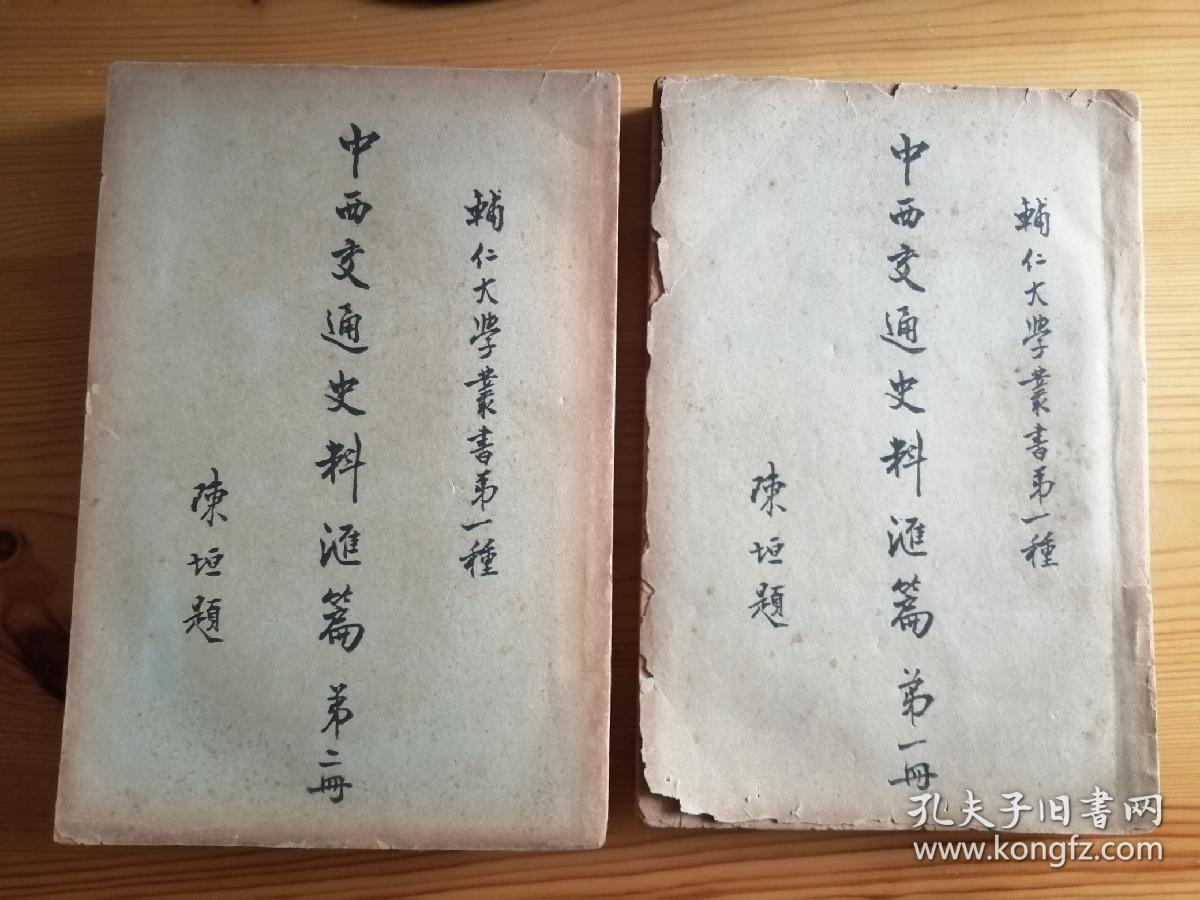 輔仁大學叢書第一種
中西交通史料滙篇 第一冊
陳垣題
輔仁大學叢書第一種
中西交通史料滙篇 第二冊
陳垣題
孔夫子旧书网
www.kongfz.com